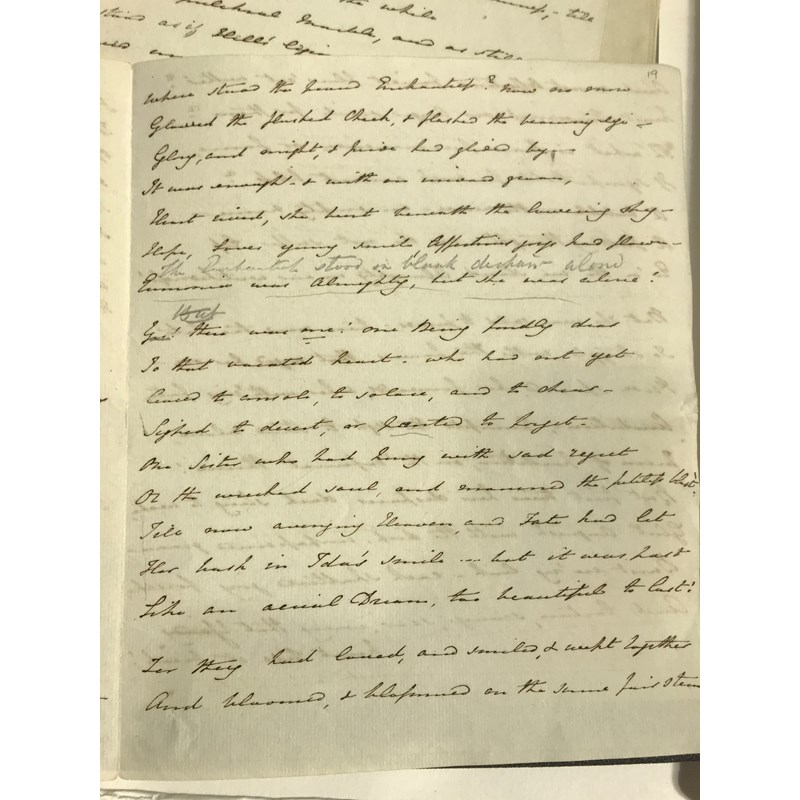 the while
marble, and as still
stood as if Hell's
19
Where stood the proud Enchantress? Now no more
Glowed the flushed Cheek, & flashed the beaming eye -
Glory, and might, & pride had glided by -
It was enough - & with an inward groan,
Heart riven, she bent beneath the lowering sky -
Hope, Love's young smile Affection's joys had flown -
The Enchantress stood in blank despair alone
was Almighty, but she was alone!
But
Yes! there was one! one Being fondly dear
To that vacated heart. who had not yet
Ceased to console, to solace, and to cheer -
Sighed to desert, or panted to forget -
One Sister who had hung with sad regret
O'er the wrecked soul, and mourned the pitiless blast
Till now avenging Heaven, and Fate had let
Her bask in Ida's smile - but it was past
Like an aerial Dream, too beautiful to last!
For they had loved, and smiled, & wept together
And bloomed, & blossomed on the same fair stem